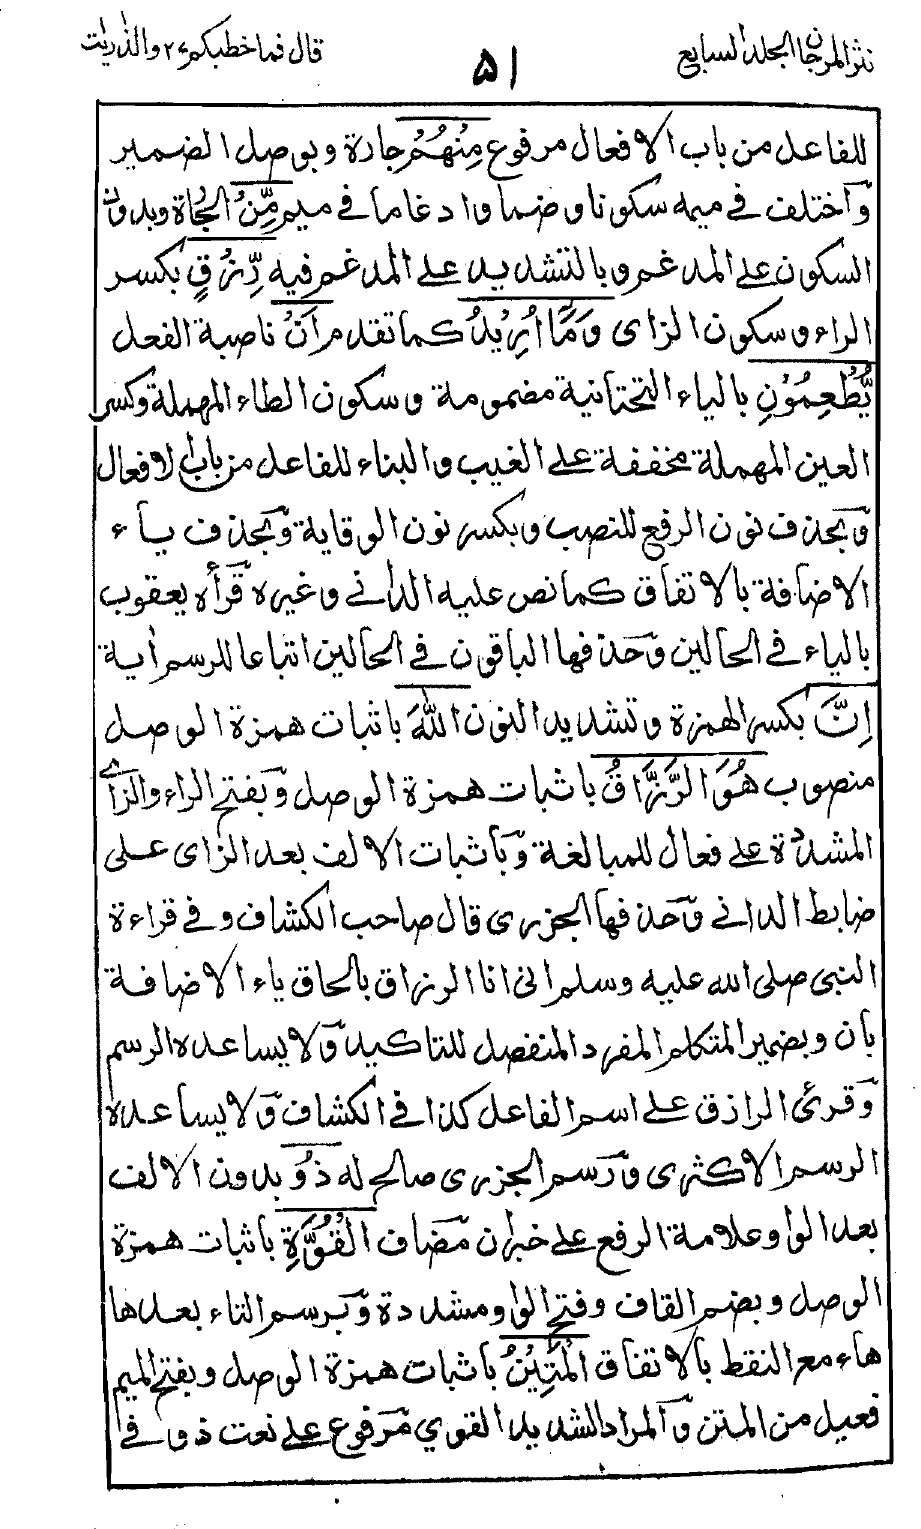 نثر المرجان الجلد السابع
۵۱
قال فما خطبكم ۲۷ والذريت
للفاعل من باب الافعال مرفوع مِنْهُمْ جارة وبوصل الضمير
واختلف في ميمه سكونا وضما وادغاما في ميم مِّنْ الجارة وبدون
السكون على المدغم وبالتشديد على المدغم فيه رِّزْقٍ بكسر
الراء وسكون الزاى وَمَّا اُرِيْدُ كما تقدم اَنْ ناصبة الفعل
يُّطْعِمُوْنِ بالياء التحتانية مضمومة وسكون الطاء المهملة وكسر
العين المهملة مخففة على الغيب والبناء للفاعل من باب الافعال
وبحذف نون الرفع للنصب وبكسر نون الوقاية وبحذف ياء
الاضافة بالاتفاق كما نص عليه الداني وغيره قرأه يعقوب
بالياء في الحالين وحذفها الباقون في الحالين اتباعا للرسم اية
اِنَّ بكسر الهمزة وتشديد النون اللهَ باثبات همزة الوصل
منصوب هُوَ الرَّزَّاقُ باثبات همزة الوصل وبفتح الراء والزاے
المشددة على فعال للمبالغة وباثبات الالف بعد الزاى على
ضابط الداني وحذفها الجزرى قال صاحب الكشاف وفي قراءة
النبى صلى الله عليه وسلم انى انا الرزاق بالحاق ياء الاضافة
بان وبضمير المتكلم المفرد المنفصل للتاكيد ولا يساعده الرسم
وقرئ الرازق على اسم الفاعل كذا في الكشاف ولا يساعده
الرسم الاكثرى ورسم الجزرى صالح له ذُوْ بدون الالف
بعد الواو علامة الرفع على خبر ان مضاف الْقُوَّةِ باثبات همزة
الوصل وبضم القاف وفتح الواو مشددة وبرسم التاء بعدها
هاء مع النقط بالاتفاق الْمَتِيْنُ باثبات همزة الوصل وبفتح الميم
فعيل من المتن والمراد الشديد القوي مرفوع على نعت ذو في